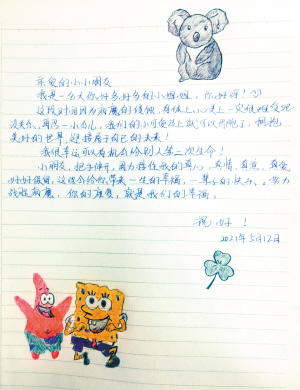 亲爱的小小朋友
我是一名大你好多好多的小姐姐，你好呀！
这段时间因为病魔的侵蚀，身体上、心灵上一定很难受吧
没关系，再忍一小会儿，我们的小可爱马上就可以康跑了，拥抱
美好的世界，迎接属于自己的未来！
我很幸运可以有机会给别人第二次生命！
小朋友，把手伸开，用力接住我的真心，真情，真意，真爱
好好保留，这将会给你带来一生的幸福，一辈子的快乐。努力
战胜病魔，你的康复，就是我们的幸福。
祝好！
2021年5月12日